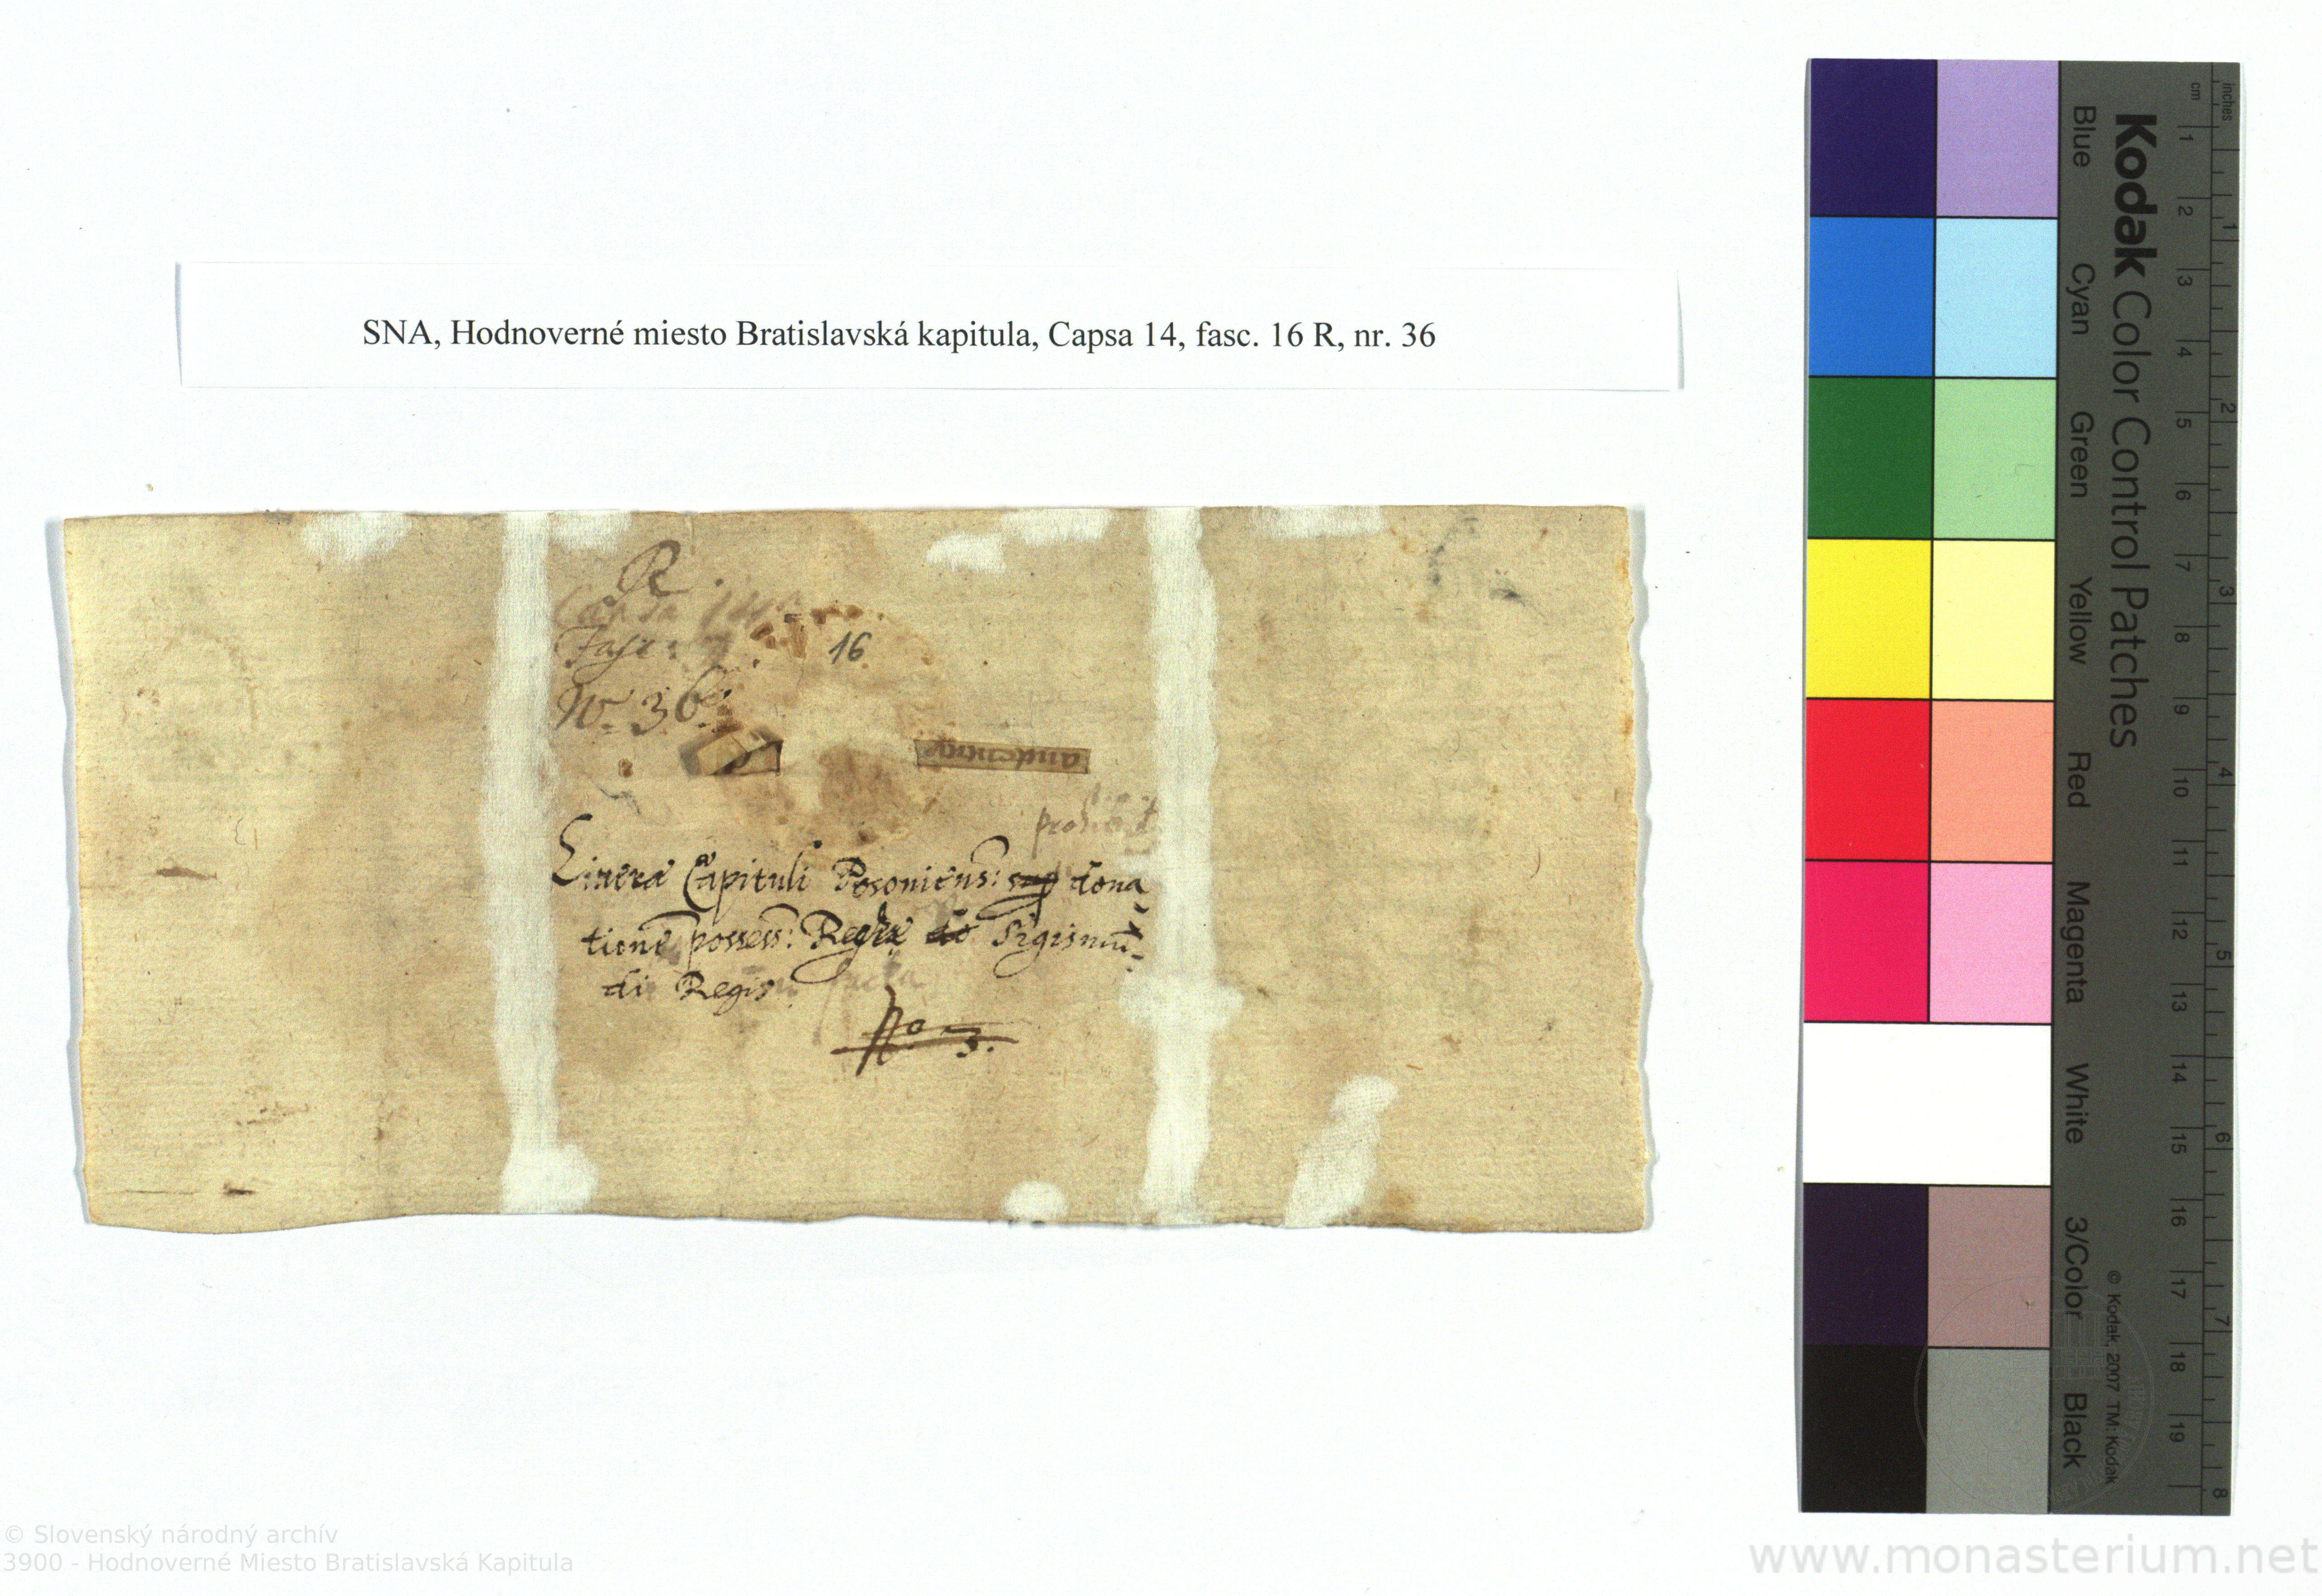 SNA, Hodnoverné miesto Bratislavská kapitula, Capsa 14, fasc. 16 R, nr. 36
R
Capsa
Fasc: 16
N. 36.
Litera Capituli Posoniens: sup dona-
tione possess: Regie de Sigismu-
di Regis
No 3.
Kodak Color Control Patches
inches
cm
1 2 3 4 5 6 7 8 9 10 11 12 13 14 15 16 17 18 19
1 2 3 4 5 6 7 8
Blue Cyan Green Yellow Red Magenta White 3/Color Black
© Kodak, 2007 TM: Kodak
© Slovenský národný archív
3900 - Hodnoverné Miesto Bratislavská Kapitula
www.monasterium.net